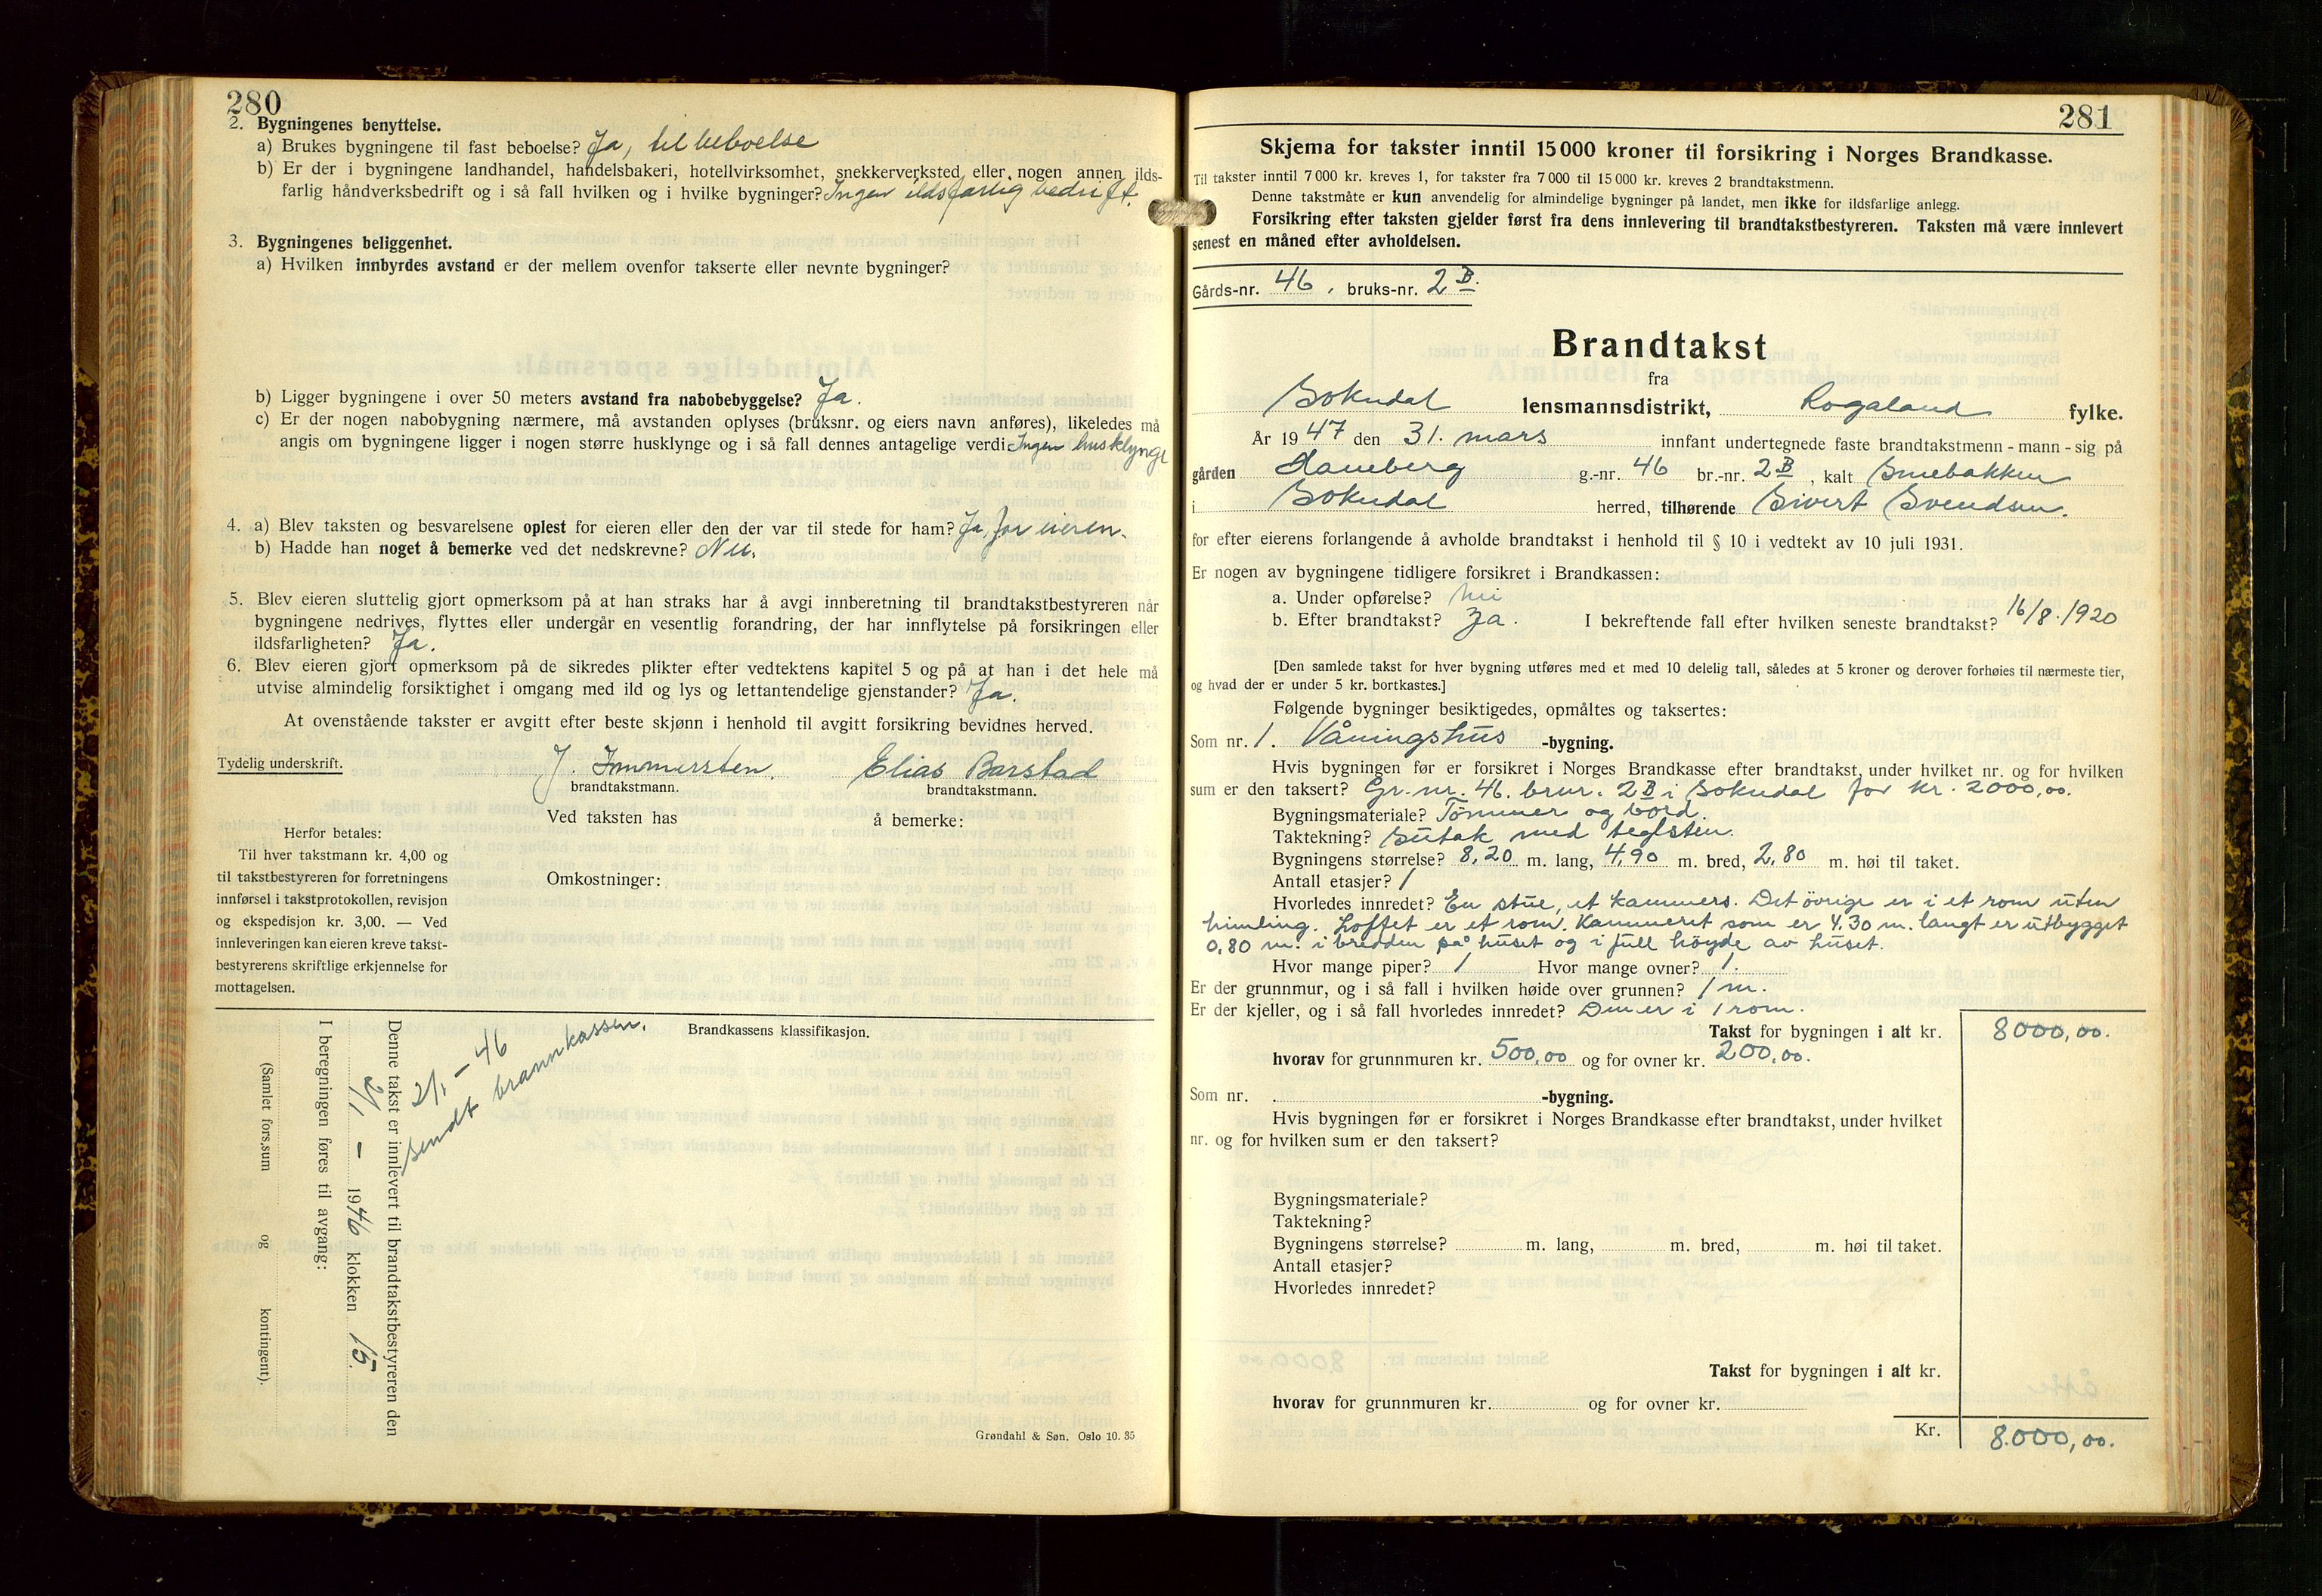 280
2. Bygningenes benyttelse.
a) Brukes bygningene til fast beboelse? Ja, til beboelse
b) Er der i bygningene landhandel, handelsbakeri, hotellvirksomhet, snekkerverksted eller nogen annen ilds-
farlig håndverksbedrift og i så fall hvilken og i hvilke bygninger? Ingen ildsfarlig bedrift.
3. Bygningenes beliggenhet.
a) Hvilken innbyrdes avstand er der mellem ovenfor takserte eller nevnte bygninger?
b) Ligger bygningene i over 50 meters avstand fra nabobebyggelse? Ja.
c) Er der nogen nabobygning nærmere, må avstanden oplyses (bruksnr. og eiers navn anføres), likeledes må
angis om bygningene ligger i nogen større husklynge og i så fall dennes antagelige verdi Ingen husklynge
4. a) Blev taksten og besvarelsene oplest for eieren eller den der var til stede for ham? Ja, for eieren.
b) Hadde han noget å bemerke ved det nedskrevne? Nei.
5. Blev eieren sluttelig gjort opmerksom på at han straks har å avgi innberetning til brandtakstbestyreren når
bygningene nedrives, flyttes eller undergår en vesentlig forandring, der har innflytelse på forsikringen eller
ildsfarligheten? Ja.
6. Blev eieren gjort opmerksom på de sikredes plikter efter vedtektens kapitel 5 og på at han i det hele må
utvise almindelig forsiktighet i omgang med ild og lys og lettantendelige gjenstander? Ja.
At ovenstående takster er avgitt efter beste skjønn i henhold til avgitt forsikring bevidnes herved.
Tydelig underskrift. J. Immersten. Elias Barstad
brandtakstmann. brandtakstmann.
Ved taksten has å bemerke:
Herfor betales:
Til hver takstmann kr. 4,00 og
til takstbestyreren for forretningens
innførsel i takstprotokollen, revisjon
og ekspedisjon kr. 3,00. — Ved
innleveringen kan eieren kreve takst-
bestyrerens skriftlige erkjennelse for
mottagelsen.
Omkostninger:
Brandkassens klassifikasjon.
2/1 - 46
sendt brannkassen.
Denne takst er innlevert til brandtakstbestyreren den
2/1 - 1946 klokken 15.
I beregningen føres til avgang:
(Samlet fors.sum og kontingent).
Grøndahl & Søn, Oslo 10. 35
281
Skjema for takster inntil 15 000 kroner til forsikring i Norges Brandkasse.
Til takster inntil 7 000 kr. kreves 1, for takster fra 7 000 til 15 000 kr. kreves 2 brandtakstmenn.
Denne takstmåte er kun anvendelig for almindelige bygninger på landet, men ikke for ildsfarlige anlegg.
Forsikring efter taksten gjelder først fra dens innlevering til brandtakstbestyreren. Taksten må være innlevert
senest en måned efter avholdelsen.
Gårds-nr. 46, bruks-nr. 2 B.
Brandtakst
fra
Sokndal lensmannsdistrikt, Rogaland fylke.
År 1947 den 31. mars innfant undertegnede faste brandtakstmenn - mann - sig på
gården Haneberg g.-nr. 46 br.-nr. 2 B, kalt Smebakken
i Sokndal herred, tilhørende Sivert Svendsen.
for efter eierens forlangende å avholde brandtakst i henhold til § 10 i vedtekt av 10 juli 1931.
Er nogen av bygningene tidligere forsikret i Brandkassen:
a. Under opførelse? nei
b. Efter brandtakst? Ja. I bekreftende fall efter hvilken seneste brandtakst? 16/8.1920
[Den samlede takst for hver bygning utføres med et med 10 delelig tall, således at 5 kroner og derover forhøies til nærmeste tier,
og hvad der er under 5 kr. bortkastes.]
Følgende bygninger besiktigedes, opmåltes og taksertes:
Som nr. 1. Våningshus -bygning.
Hvis bygningen før er forsikret i Norges Brandkasse efter brandtakst, under hvilket nr. og for hvilken
sum er den taksert? Gr.-nr. 46. brnr. 2 B i Sokndal for kr. 2000,00.
Bygningsmateriale? Tömmer og bord.
Taktekning? Sutak med teglsten.
Bygningens størrelse? 8,20 m. lang, 4,90 m. bred, 2,80 m. høi til taket.
Antall etasjer? 1
Hvorledes innredet? En stue, et kammers. Det övrige er i et rom uten
himling. Loftet er et rom. Kammeret som er 4.30 m. langt er utbygget
0,80 m. i bredden på huset og i full höyde av huset.
Hvor mange piper? 1 Hvor mange ovner? 1.
Er der grunnmur, og i så fall i hvilken høide over grunnen? 1 m.
Er der kjeller, og i så fall hvorledes innredet? Den er i 1 rom.
Takst for bygningen i alt kr. 8000,00.
hvorav for grunnmuren kr. 500,00 og for ovner kr. 200,00.
Som nr. -bygning.
Hvis bygningen før er forsikret i Norges Brandkasse efter brandtakst, under hvilket
nr. og for hvilken sum er den taksert?
Bygningsmateriale?
Taktekning?
Bygningens størrelse? m. lang, m. bred, m. høi til taket.
Antall etasjer?
Hvorledes innredet?
Takst for bygningen i alt kr.
hvorav for grunnmuren kr. og for ovner kr.
Kr. 8.000,00.